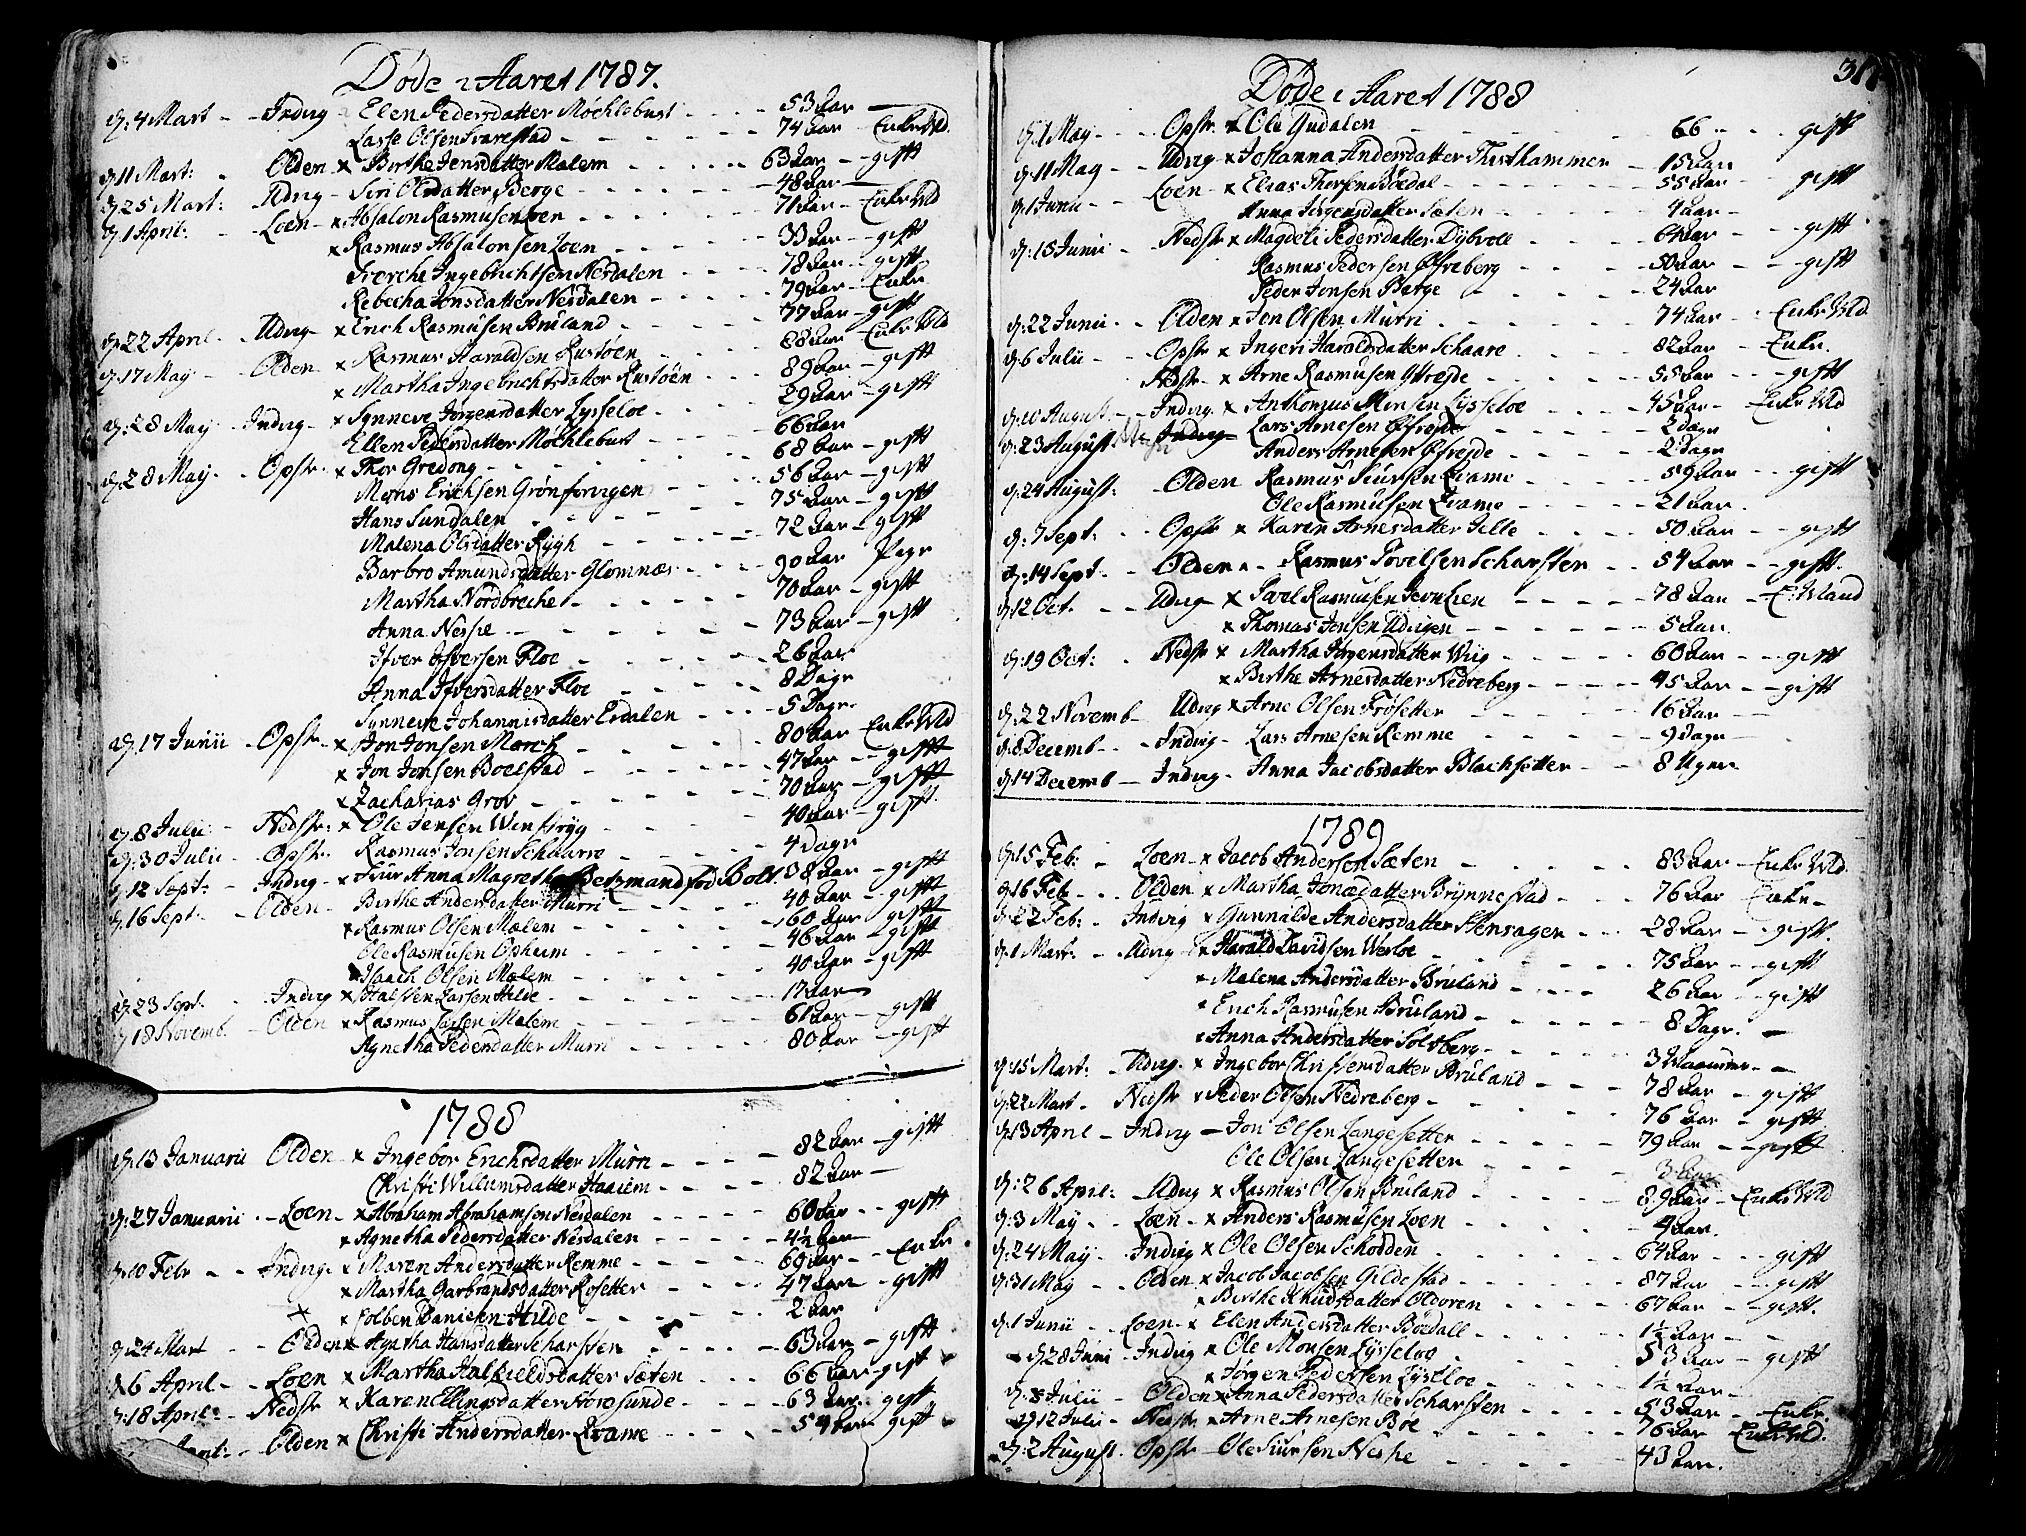 Døde i Aaret 1787.
d. 4 Mart - Indvig - Elen Pedersdatter Møchlebust - 53 Aar
Lasse Olsen Svarestad - 74 Aar - Enke Md
d. 11 Mart: Olden x Birthe Jensdatter Malem - 63 Aar - gift
d. 25 Mart: Udvig - Siri Olsdatter Berge - 48 Aar
d. 1 April: Loen - x Absalon Rasmusen Loen - 71 Aar - Enke Md
x Rasmus Absalonsen Loen - 33 Aar - gift
Ingebrichtsen Nesdalen - 78 Aar - gift
Rebecha Jonsdatter Nesdalen - 79 Aar - Enke
d. 22 April - Udvig - x Erich Rasmusen Bruland - 77 Aar - gift
d. 17 May - Olden - x Rasmus Haraldsen Rustøen - 88 Aar - Enke Md
x Martha Ingebrichtsdatter Rustøen - 89 Aar - gift
d. 28 May - Indvig - x Synneve Jørgensdatter Lysseloe - 29 Aar - gift
Ellen Pedersdatter Møchlebust - 66 Aar
d. 28 May - Opstr. x Thor Gredong - 68 Aar - gift
Mons Erichsen Grønfurvigen - 56 Aar - gift
Hans Sundalen - 75 Aar - gift
Malena Olsdatter Rygh - 72 Aar - gift
Barbro Amundsdatter Glomnæs - 90 Aar Pige
Martha Nordbreche - 70 Aar - gift
Anna Nesse - 73 Aar - gift
Ifver Ifversen Floe - 26 Aar
Anna Ifversdatter Floe - 8 Dage
Synneve Johannisdatter Erdalen - 5 Dage
d. 17 Junii - Opstr. - x Jon Jonsen March - 80 Aar - Enke Md
x Jon Jonsen Boelstad - 47 Aar - gift
x Zacharias Grov - 70 Aar - gift
d. 8 Julii - Nedstr: x Ole Jensen Winsrÿg - 40 Aar - gift
d. 30 Julii - Opstr. Rasmus Jonsen Schaarre - 4 Dage
d. 12 Sept: - Indvig - x Frue Anna Magretha Betzmand fød Bolt. 38 Aar - gift
d. 16 Sept. - Olden - Birthe Andersdatter Murri - 40 Aar - gift
x Rasmus Olsen Mælem - 60 Aar - gift
Ole Rasmusen Opheim - 46 Aar - gift
Isaach Olsen Mælem - 40 Aar - gift
d. 23 Sept. - Indvig x Halsten Larsen Hilde - 17 Aar
d. 18 Novemb. - Olden x Rasmus Larsen Malem - 61 Aar - gift
Agnetha Pedersdatter Murri - 80 Aar - gift
1788
d. 13 Januarii Olden x Ingebor Erichsdatter Murri - 82 Aar - gift
Christi Willumsdatter Haaiem - 82 Aar
d. 27 Januarii - Loen - x Abraham Abrahamsen Nesdalen - 60 Aar - gift
x Agnetha Pedersdatter Nesdalen - 4½ Aar
d. 10 Febr - Indvig x Maren Andersdatter Remme - 69 Aar - Enke
x Martha Garbrandsdatter Rosetter - 47 Aar - gift
x Danielsen Hilde - 2 Aar
d. 24 Mart - Olden x Agntha Hansdatter Scharsten - 63 Aar - gift
d. 6 April - Loen x Martha Halfieldsdatter Sæten - 66 Aar - gift
d. 18 April: - Nedstr x Karen Ellingsdatter Horesunde - 63 Aar - gift
Olden x Christi Andersdatter Qvame - 54 Aar - gift
Døde i Aaret 1788
317
d. 1 May - Opstr. x Ole Gudalen - 66 - gift
d. 11 May - Udvig x Johanna Andersdatter Tisthammer - 15 Aar
d. 1 Junii - Loen - x Elias Thorsen Bødal - 55 Aar - gift
Anna Jørgensdatter Sæten - 4 Aar
d. 15 Junii - Nedstr x Magdeli Pedersdatter Dybvoll - 64 Aar - gift
Rasmus Pedersen Øfreberg - 50 Aar - gift
Peder Jonsen Berge - 24 Aar
d. 22 Junii - Olden x Jon Olsen Murri - 74 Aar - Enke Md
d. 6 Julii - Opstr x Ingeri Haraldsdatter Schaare - 82 Aar - Enke.
Nedstr - x Arne Rasmusen - 55 Aar - gift
d. 10 August - Indvig x Anthonius Monsen Lysseloe - 45 Aar - Enke Md
d. 23 August: Indvig Lars Arnesen - 2 Dage
Anders Arnesen - 2 Dage
d. 24 August: - Olden Rasmus Siursen Qvame - 59 Aar - gift
Ole Rasmusen Qvame - 21 Aar.
d. 7 Sept: Opstr x Karen Arnesdatter Telle - 50 Aar - gift
d. 14 Sept. - Olden - Rasmus Povelsen Scharsten - 54 Aar - gift.
d. 12 Oct. - Udvig x Paul Rasmusen - 78 Aar - E: Mand
x Thomas Jensen Udvigen - 5 Aar.
d. 19 Oct: Nedstr x Martha Jørgensdatter Wiig - 60 Aar - gift
x Birthe Arnesdatter Nedreberg - 45 Aar - gift
d. 22 Novemb - Udvig x Arne Olsen Frøsetter - 16 Aar
d. 8 Decemb - Indvig - Lars Arnesen Remme - 9 Dage
d. 14 Decemb - Indvig - Anna Jacobsdatter Blachsetter - 8 Uger
1789
d. 15 Feb: - Loen - x Jacob Andersen Sæten - 83 Aar - Enke Md.
d. 16 Feb - Olden x Martha Jonædatter Brynnestad - 76 Aar Enke
d. 22 Feb: Indvig x Gunnilde Andersdatter Stensagen - 28 Aar - gift.
d. 1 Mart: - Udvig x Harald Davidsen Wesloe - 75 Aar - gift
x Malena Andersdatter Bruland - 26 Aar - gift
x Erich Rasmusen Bruland - 8 Dage.
x Anna Andersdatter Solsberg - 3 Maaneder
d. 15 Mart: - Udvig. x Ingebor Christensdatter Bruland - 78 Aar - gift
d. 22 Mart - Nedstr x Peder Olsen Nedreberg - 76 Aar - gift
d. 13 April - Indvig - Jon Olsen Langesetter - 79 Aar - gift
Ole Olsen Langesetter - 3 Aar
d. 26 April: Udvig x Rasmus Olsen Bruland - 89 Aar - Enke Md
d. 3 May - Loen - x Anders Rasmusen Loen - 4 Aar.
d. 24 May - Indvig x Ole Olsen Schodden - 64 Aar - gift
d. 31 May - Olden x Jacob Jacobsen Gildestad - 87 Aar - gift
x Birthe Knudsdatter Oldøren - 67 Aar - gift.
d. 1 Junii - Loen - x Elen Andersdatter Bødall - 1½ Aar
d. 28 Juni - Indvig x Ole Monsen Lysseloe - 53 Aar - gift
x Jørgen Pedersen Lysseloe - 1½ Aar
d. 8 Julii - Olden x Anna Pedersdatter Scharsten - 53 Aar - Enke.
d. 12 Julii - Nedstr x Arne Arnesen Bøe - 76 Aar Enke Md.
d. 2 August. Opstr - Ole Siursen Nesse - 43 Aar.